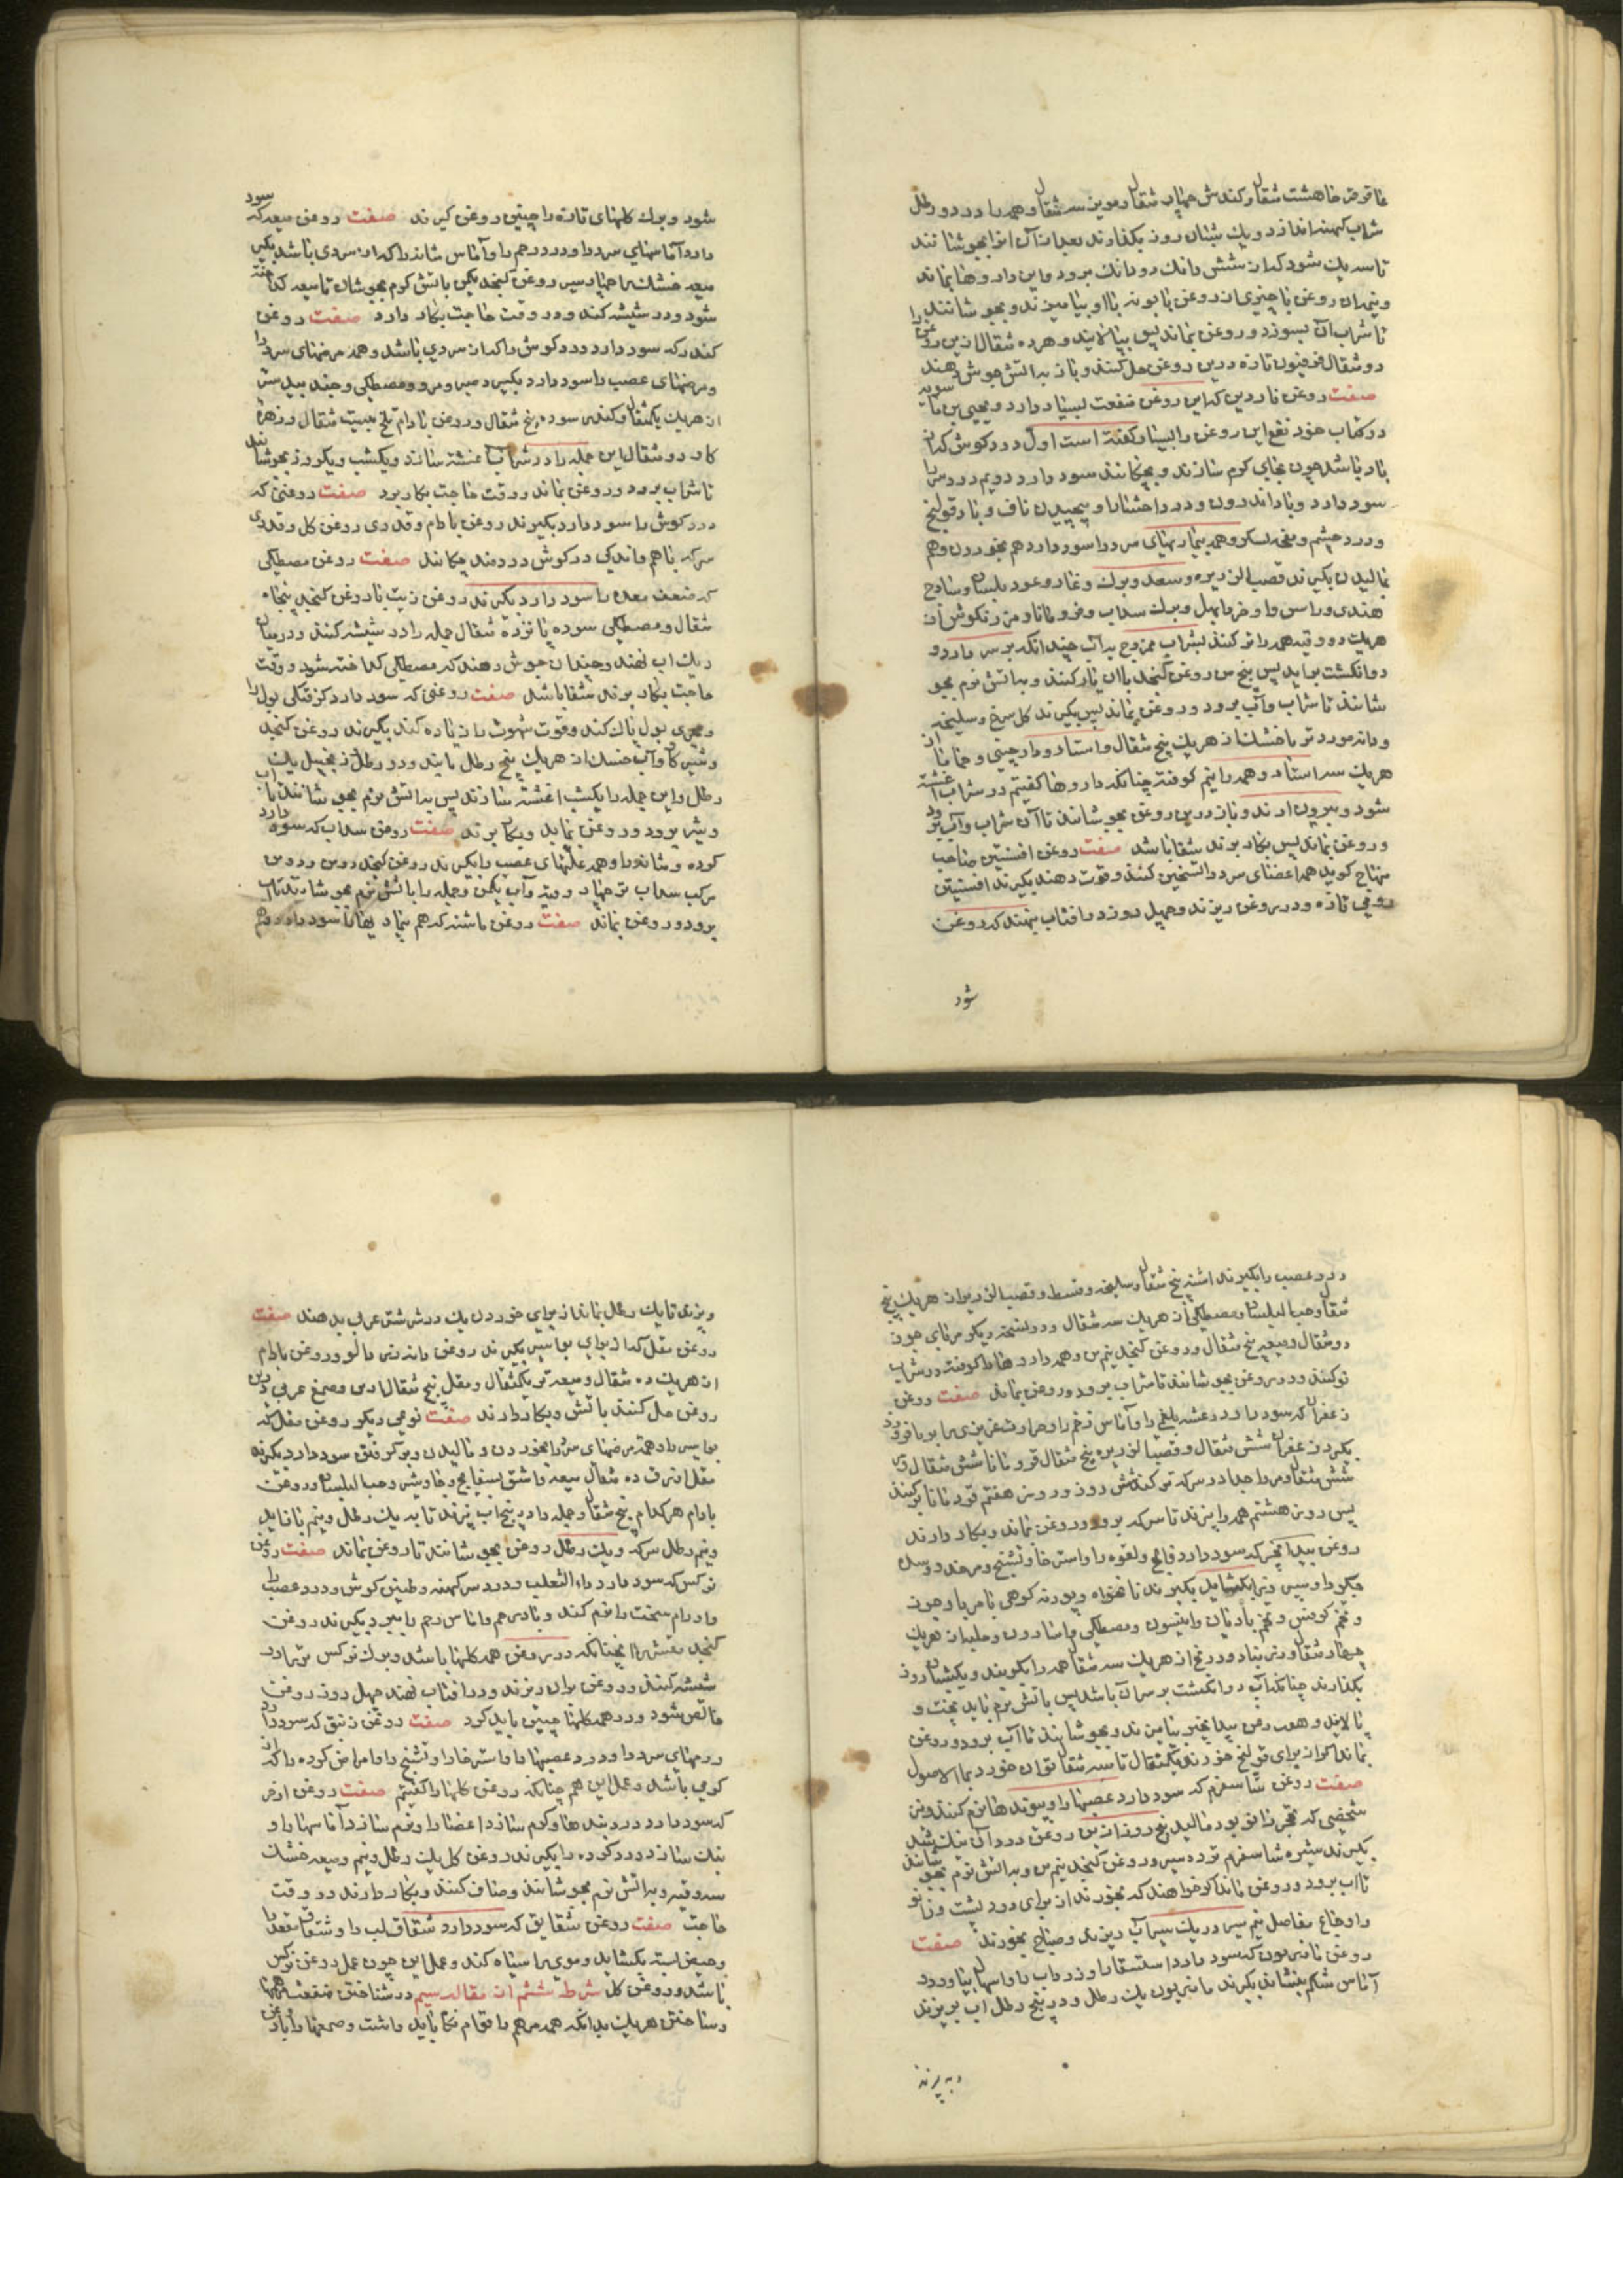 عاقرقرحا هشت مثقال و کندش چهار مثقال و مویز سه مثقال و همه را در دو رطل
شراب کهنه اندازد و یک شبان روز بکذارند بعد از آن انرا بجوشانند
تا سه یک شود که از شش دانک دو دانک برود و این دارو ها بماند
و نیم ان روغن یا چیزی از روغن بابونه باا و بیامیزند و بجوشانند
تا شراب آن بسوزد و روغن بماند پس بپالایند و هر ده مثقال ازین روغن را
دو مثقال فرفیون تازه درین روغن حل کنند و باز بر اتش جوش دهند
صفت روغن ناردین که این روغن منفعت بسیار دارد و یحیی بن ماسویه
در کتاب خود نفع این روغن را بسیار کفته است اول درد کوش که از
باد باشد چون بجای کرم سازند و بچکانند سود دارد دویم درد سر را
سود دارد و باد اندرون و درد احشا را و پیچیدن ناف و باد قولنج
و درد چشم و همه بیماریهای سرد را سود دارد هم بخوردن و هم
بمالیدن بکیرند قصب الذریره و سعد و برک و غار و عود بلسان و ساذج
هندی و راسن و اوخرما بهل و برک سداب و قردمانا و مرزنکوش از
هریک دو وقیه همه را تر کنند بشراب ممزوج به آب چندانکه بر سر دارو
دو انکشت براید پس پنج من روغن کنجد باان یار کنند و بر اتش نرم بجو
شانند تا شراب و آب برود و روغن بماند پس بکیرند کل سرخ و سلیخه
و دانه مورد تر یا خشک از هریک پنج مثقال و استاد و دارچینی و حماما از
هریک سه استاد و همه را نیم کوفته چنانکه دارو ها کفتیم در شراب اغشته
شود و بیرون ارند و باز درین روغن بجوشانند تا آن شراب و آب برود
و روغن بماند پس بکار برند شفا باشد صفت روغن افسنتین صاحب
منهاج کوید همه اعضای سرد را تسخین کند و قوت دهد بکیرند افسنتین
رومی تازه و در روغن ریزند و چهل روز در افتاب بنهند که روغن
شود
شود و برک کلهای تازه را چنین روغن کیرند صفت روغن میعه که سود
دارد آماسهای سرد را و درد رحم را و آماس مثانه را که از سردی باشد بکیرند
میعه خشک را چهار سیر روغن کنجد یکمن باتش کرم بجوشان تا میعه کداخته
شود و در شیشه کند و در وقت حاجت بکار دارد صفت روغن
کندر که سود دارد درد کوش را که از سردی باشد و همه مرضهای سرد را
و مرضهای عصب را سود دارد بکیرد صبر و مر و مصطکی و جند بیدستر
از هریک یکمثقال و کندر سوده پنج مثقال و روغن بادام تلخ بیست مثقال و زهره
کاو دو مثقال این جمله را در شراب اغشته سازند و یکشب و یکروز بجوشانند
تا شراب برود و روغن بماند و وقت حاجت بکار برد صفت روغنی که
درد کوش را سود دارد بکیرند روغن بادام و قدری روغن کل و قدری
سرکه باهم و اندکی در کوش دردمند چکانند صفت روغن مصطکی
که ضعف معده را سود دارد بکیرند روغن زیت یا روغن کنجد پنجاه
مثقال و مصطکی سوده پانزده مثقال جمله را در شیشه کنند و در میان
دیک اب نهند و چندان جوش دهند که مصطکی کداخته شود و وقت
حاجت بکار برند شفا باشد صفت روغنی که سود دارد کزفتکی بول را
و مجری بول پاک کند و قوت شهوت را زیاده کند بکیرند روغن کنجد
و شیر کاو و آب خسک از هریک پنج رطل بایند و دو رطل زنجبیل یک
رطل و این جمله را یکشب اغشته سازند پس بر اتش نرم بجوشانند تا اب
و شیر برود و روغن بماند و بکار برند صفت روغن سداب که سود دارد
کرده و مثانه را و همه علتهای عصب را بکیرند روغن کنجد دو من و دو من
مرکب سداب تر چهار وقیه و آب یکمن و جمله را باتش نرم بجوشانند تا اب
برود و روغن بماند صفت روغن ماشنه که هم بیماریها را سود دارد و هم
درد عصب را بکیرند اشنه پنج مثقال و سلیخه و قسط و قصب الذریره از هریک پنج
مثقال و حب البلسان و مصطکی از هریک سه مثقال و در نسخه دیکر مرتای جون
دو مثقال و میعه پنج مثقال و روغن کنجد نیم من و همه دارو ها را کوفته در شراب
تر کنند و در روغن بجوشانند تا شراب برود و روغن بماند صفت روغن
زعفران که سود دارد رعشه بلغمی را و آماس زخم را و حرارت غریزی را بر بافروزد
بکیرد زعفران شش مثقال و قصب الذریره پنج مثقال قردمانا شش مثقال و مر
شش مثقال و مر را جدا در سرکه تر کند شش روز و روز هفتم قردمانا تر کنند
پس روز هشتم همه را بپزند تا سرکه برود و روغن بماند و بکار دارند
روغن بیدانجیر که سود دارد فالج و لقوه را و استرخا و تشنج و مرخد و و سده
جکر را و سپرز را بکشاید بکیرند نانخواه و پودنه کوهی یا مریا و چون
و تخم کرفس و تخم بادیان و انیسون و مصطکی و اسارون و حلبه از هریک
چهار مثقال و زرنباد و درنج از هریک سه مثقال همه را بکوبند و یکشبان روز
بکذارند چنانکه آب دو انکشت بر سر آن باشد پس باتش نرم باید پخت و
پالاید و هم روغن بیدانجیر بیامیزند و بجوشانند تا آب برود و روغن
بماند اکر از برای قولنج خورند یکمثقال تا سه مثقال توان خورد بماء الاصول
صفت روغن شاسفرم که سود دارد عصبها را و پیوندها نرم کنند و نیز
شخصی که فجر زانو بود مالید پنج روز ازین روغن درد آن نیک شد
بکیرند شیره شاسفرم تر ده سیر و روغن کنجد نیم من و بر اتش نرم بجوشانند
تا اب برود و روغن بماند اکر خواهند که بخورند از برای درد پشت و زانو
و اوجاع مفاصل نیم سیر در یک سیراب ریزند و صباح بخورند صفت
روغن مازریون که سود دارد استسقا را و زرداب را و اسهال بیاورد
آماس شکم بنشاند بکیرند مازریون یک رطل و در پنج رطل اب بریزند
و به پزند
و بپزی تا یک رطل بماند از برای خوردن یک درم شتر عراب بدهند صفت
روغن مقل که از برای بواسیر بکیرند روغن دانه زرد آلو و روغن بادام
از هریک ده مثقال و میعه تر یکمثقال و مقل پنج مثقال ادرس و صمغ عربی درین
روغن حل کنند باتش و بکار دارند صفت نوعی دیکر روغن مقل که
بواسیر را و همه مرضهای سرد را بخوردن و مالیدن و برکرفتن سود دارد بکیرند
مقل ازرق ده مثقال میعه و اشق بسفایج و جاوشیر و حب البلسان و روغن
بادام هر کدام پنج مثقال و جمله را در پنج اب بپزند تا به یک رطل و نیم باز اید
و نیم رطل سرکه و یک رطل روغن بجوشانند تا روغن بماند صفت روغن
نرکس که سود دارد داء الثعلب و درد سر کهنه و طنین کوش و درد عصب را
و اورام سخت را نرم کند و باد رحم و اماس رحم را ببرد بکیرند روغن
کنجد مقشر را انچنانکه در روغن همه کلها باشد و برک نرکس تر را در
شیشه کنند و روغن بران ریزند و در افتاب نهند چهل روز روغن
خالص شود و در همه کلها چنین باید کرد صفت روغن زنبق که سود دارد
ورمهای سرد را و درد عصبها را و استرخا را و تشنج را و امراض کرده را که از
کرمی باشد و عمل این هم چنانکه روغن کلها را کفتیم صفت روغن اذخر
که سود دارد درد بندها و کرم سازد اعضا را و نرم سازد آماسها را و
نیک سازد درد کرده را بکیرند روغن کل یک رطل و نیم و میعه خشک
سه وقیه و بر اتش نرم بجوشانند و صاف کنند و بکار دارند در وقت
حاجت صفت روغن شقایق که سود دارد شقاق لب را و شقاق مقعد را
و حیض بسته بکشاید و موی را سیاه کند و عمل این چون عمل روغن نرکس
باشد و روغن کل شرط ششم از مقاله سیم در شناختن منفعت مرهمها
و ساختن هریک بدانکه همه مرهم را قوام نکاه باید داشت و صمغها را با روغن